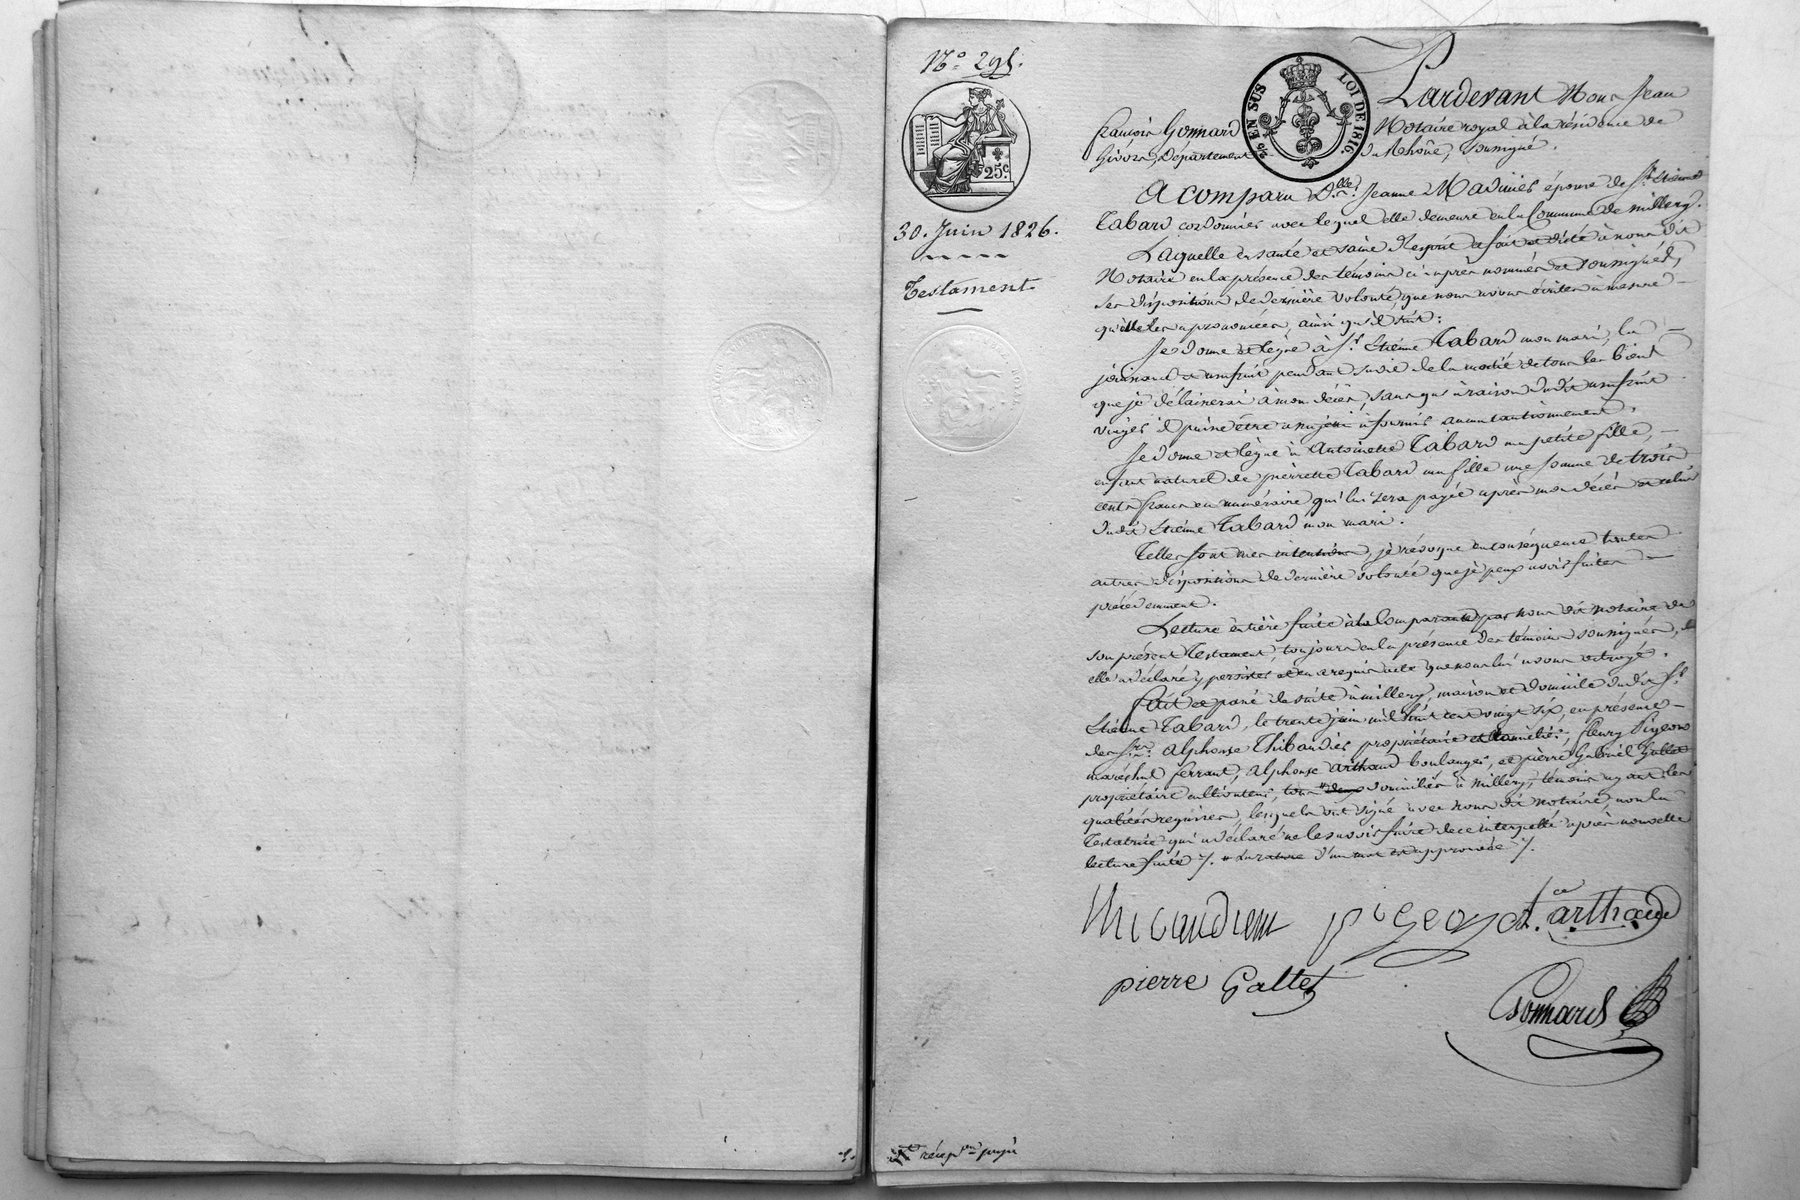 N.° 295.
26 EN SUS LOI DE 1816.
25 c
30. Juin 1826.
Testament
Pardevant Nous Jean
françois Gonnard Notaire royal à la résidence de
Givors, Département du Rhône, soussigné.
A comparu D.lle Jeanne épouse de S.r Etiénne
Tabard cordonnier avec lequel elle demeure en la Commune de millery.
Laquelle en santé et saine d'esprit a fait et dicté à nous dit
Notaire en la présence des témoins ci-après nommés et soussignés,
ses dispositions de dernière volonté, que nous avons écrites à mesure
qu'elle les a prononcées, ainsi qu'il suit :
Je donne et lègue à S.r Etiénne Tabard mon mari, la
jouissance et usufruit pendant sa vie de la moitié de tous les biens
que je délaisserai à mon décès, sans qu'à raison dudit usufruit
viager il puisse être assujetti à fournir aucun cautionnement.
Je donne et lègue à Antoinette Tabard ma petite fille,
enfant naturel de pierrette Tabard ma fille une somme de trois
cents francs en numéraire qui lui sera payée après mon décès et celui
dudit Etiénne Tabard mon mari.
Telles sont mes intentions, je révoque en conséquence toutes
autres dispositions de dernière volonté que je peux avoir faites
précédemment.
Lecture entière faite à la Comparante par nous dit notaire de
son présent Testament, toujours en la présence des témoins soussignés,
elle a déclaré y persister et en a requis acte que nous lui avons octroyé.
fait et passé de suite à millery, maison et domicile dudit S.r
Etiénne Tabard, le trente juin mil huit cent vingt six, en présence
des S.rs alphonse Thibaudier propriétaire et fleury Pigeon
maréchal ferrant, alphonse arthaud boulanger, et pierre Gabriël Gallet
propriétaire cultivateur, tous domiciliés à millery, témoins ayant les
qualités requises, lesquels ont signé avec nous dit notaire, non la
Testatrice qui a déclaré ne le savoir faire de ce interpellé après nouvelle
lecture faite ./. rature d'un mot approuvée ./.
pigeon ce arthaud
pierre Gallet
Gonnard